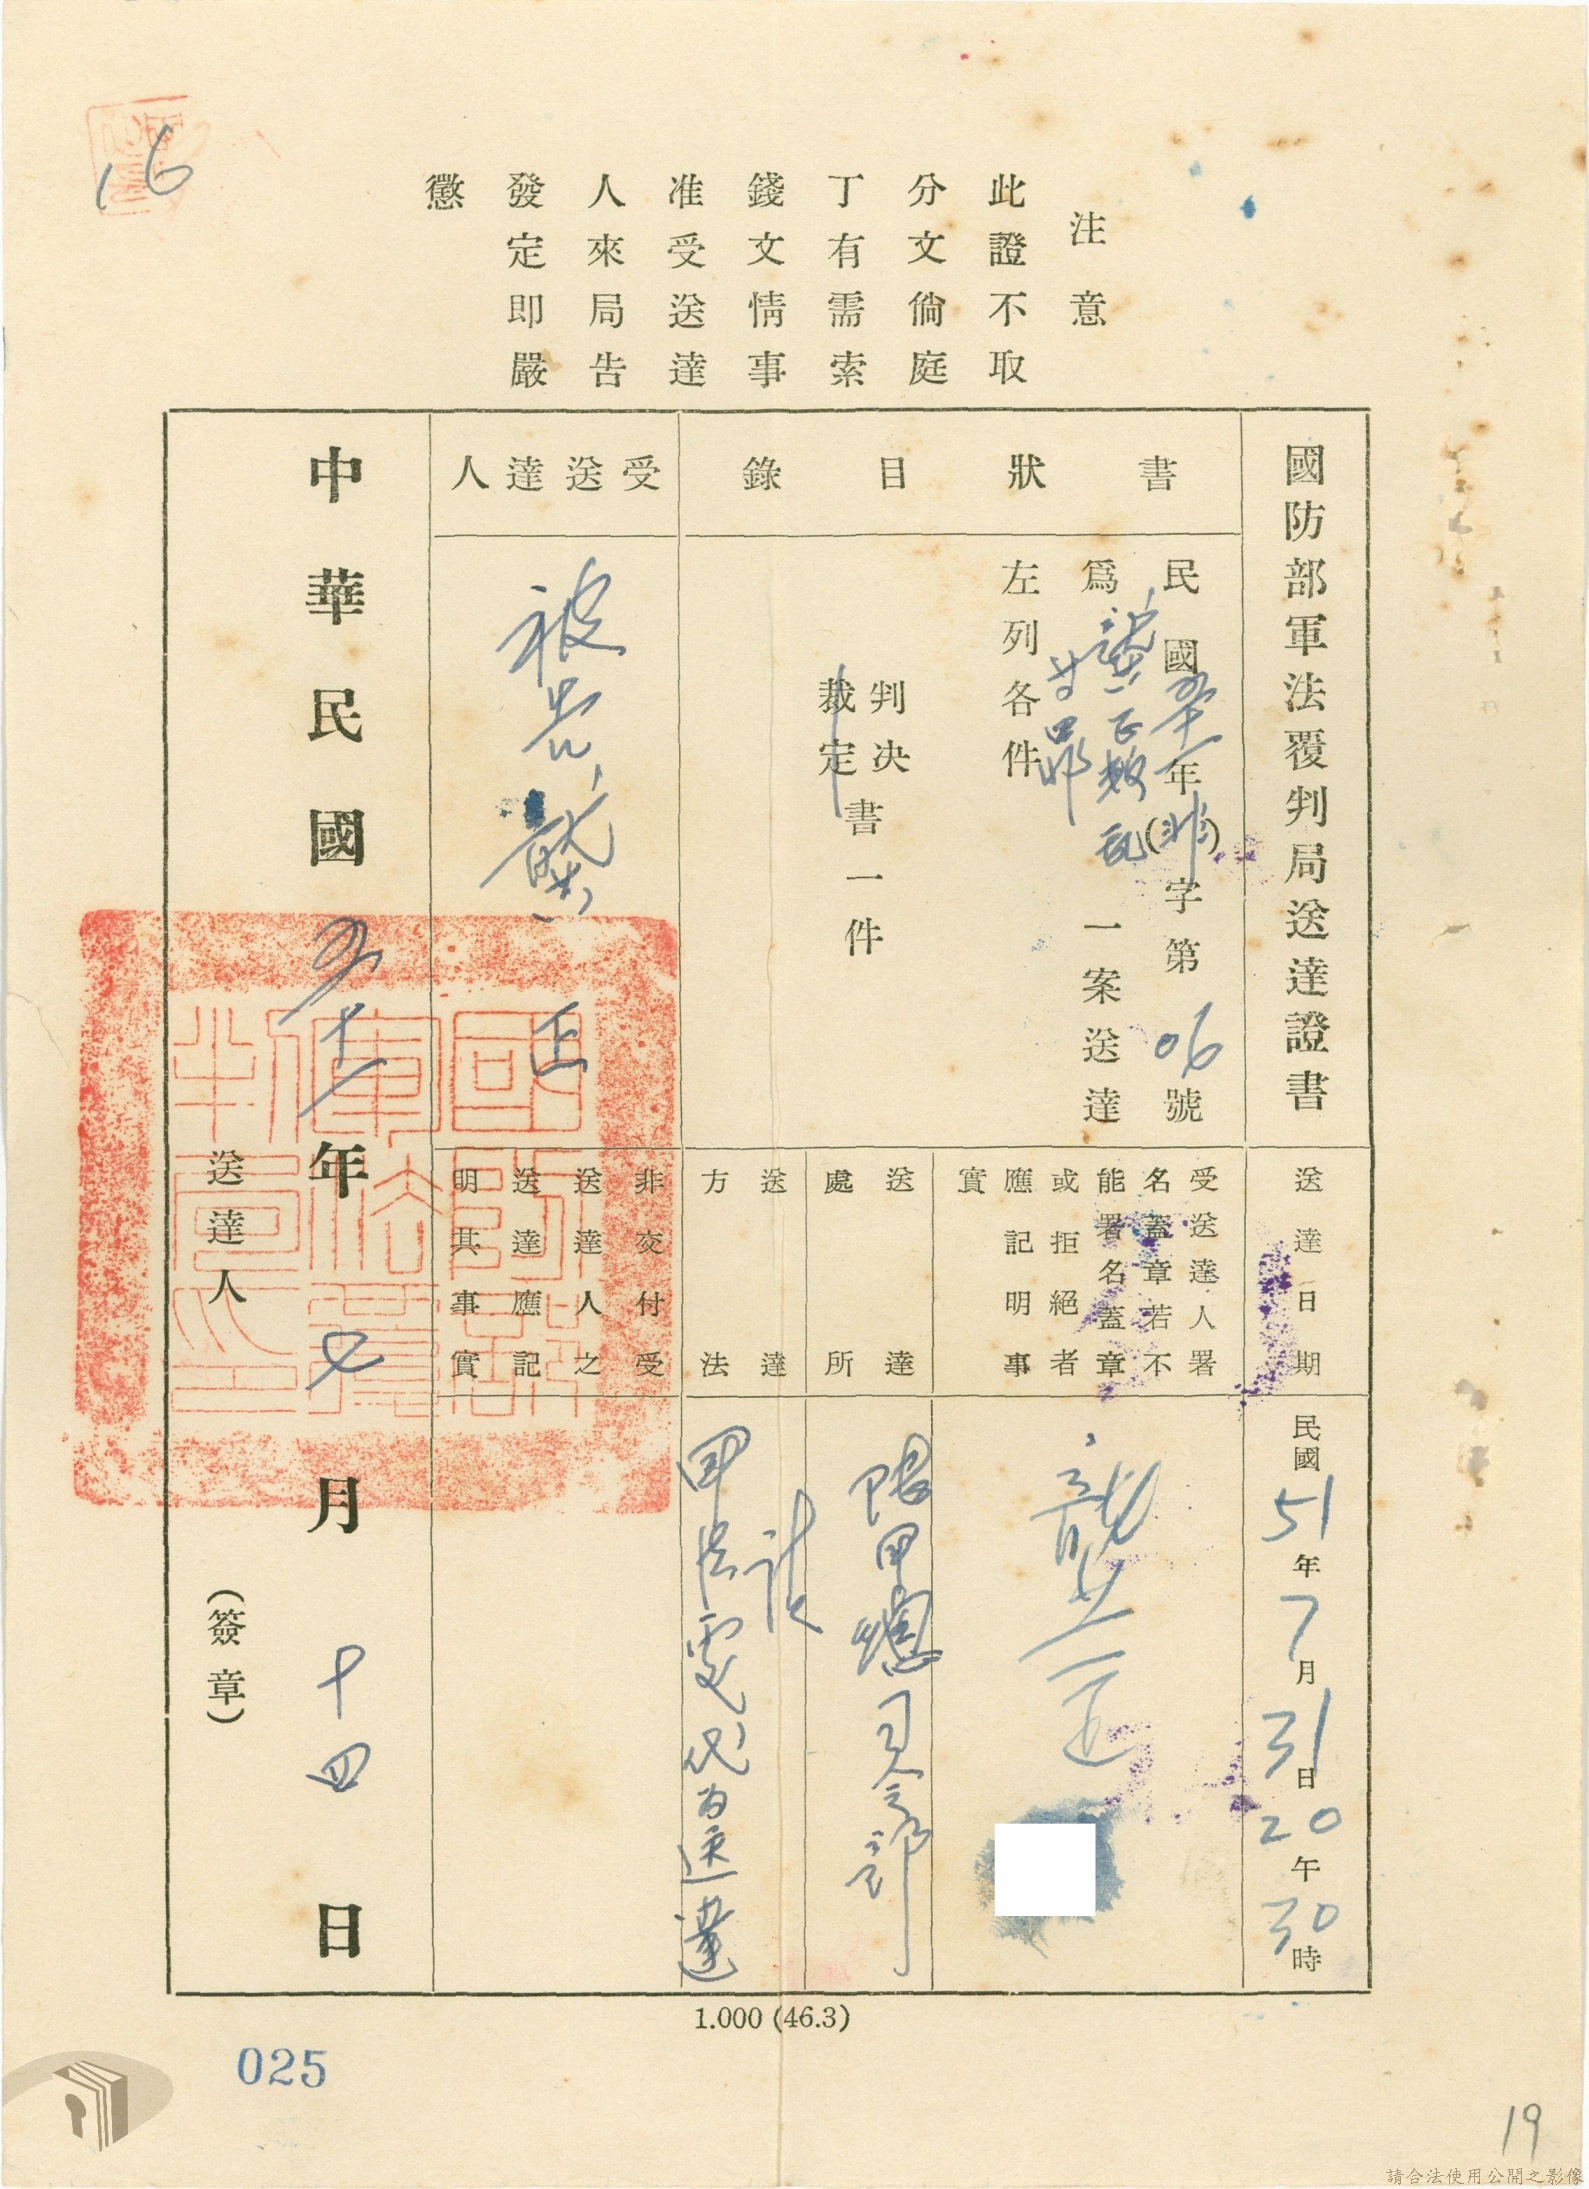 16
注意
此證不取
分文倘庭
丁有需索
錢文情事
准受送達
人來局告
發定即嚴
懲
國防部軍法覆判局送達證書
書狀目錄
民國五十一年(非)字第06號
為龔正
一案送達
左列各件
判决
裁定
書一件
受送達人
被告龔正
送達日期
民國51年7月31日20午30時
受送達人署
名蓋章若不
能署名蓋章
或拒絕者
應記明事
實
龔正
送達
處所
司令部
送達
方法
送達
非交付受
送達人之
送達應記
明其事實
中華民國五十一年七月十四日
送達人(簽章)
1.000 (46.3)
025
19
請合法使用公開之影像